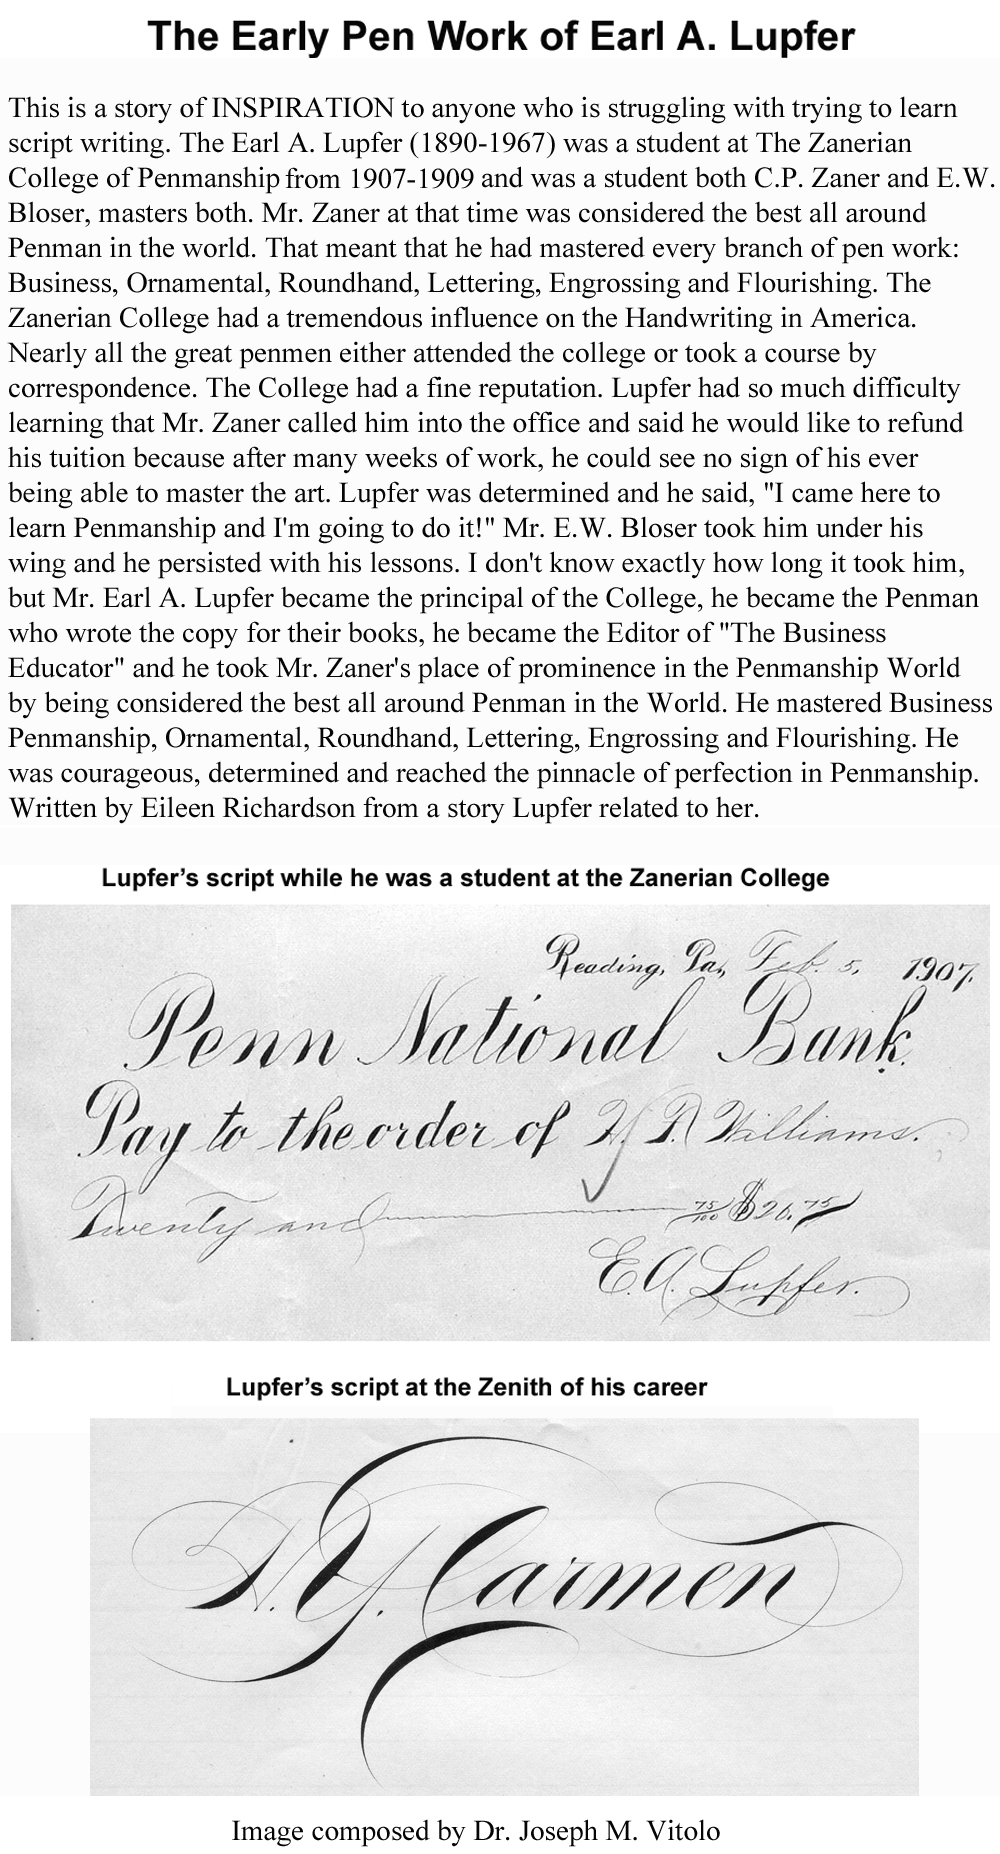 The Early Pen Work of Earl A. Lupfer
This is a story of INSPIRATION to anyone who is struggling with trying to learn
script writing. The Earl A. Lupfer (1890-1967) was a student at The Zanerian
College of Penmanship from 1907-1909 and was a student both C.P. Zaner and E.W.
Bloser, masters both. Mr. Zaner at that time was considered the best all around
Penman in the world. That meant that he had mastered every branch of pen work:
Business, Ornamental, Roundhand, Lettering, Engrossing and Flourishing. The
Zanerian College had a tremendous influence on the Handwriting in America.
Nearly all the great penmen either attended the college or took a course by
correspondence. The College had a fine reputation. Lupfer had so much difficulty
learning that Mr. Zaner called him into the office and said he would like to refund
his tuition because after many weeks of work, he could see no sign of his ever
being able to master the art. Lupfer was determined and he said, "I came here to
learn Penmanship and I'm going to do it!" Mr. E.W. Bloser took him under his
wing and he persisted with his lessons. I don't know exactly how long it took him,
but Mr. Earl A. Lupfer became the principal of the College, he became the Penman
who wrote the copy for their books, he became the Editor of "The Business
Educator" and he took Mr. Zaner's place of prominence in the Penmanship World
by being considered the best all around Penman in the World. He mastered Business
Penmanship, Ornamental, Roundhand, Lettering, Engrossing and Flourishing. He
was courageous, determined and reached the pinnacle of perfection in Penmanship.
Written by Eileen Richardson from a story Lupfer related to her.
Lupfer's script while he was a student at the Zanerian College
Reading, Pa, Feb. 5, 1907.
Penn National Bank.
Pay to the order of Williams.
Twenty and 75/100 $20.75
E.A. Lupfer.
Lupfer's script at the Zenith of his career
H.Y. Carmen
Image composed by Dr. Joseph M. Vitolo